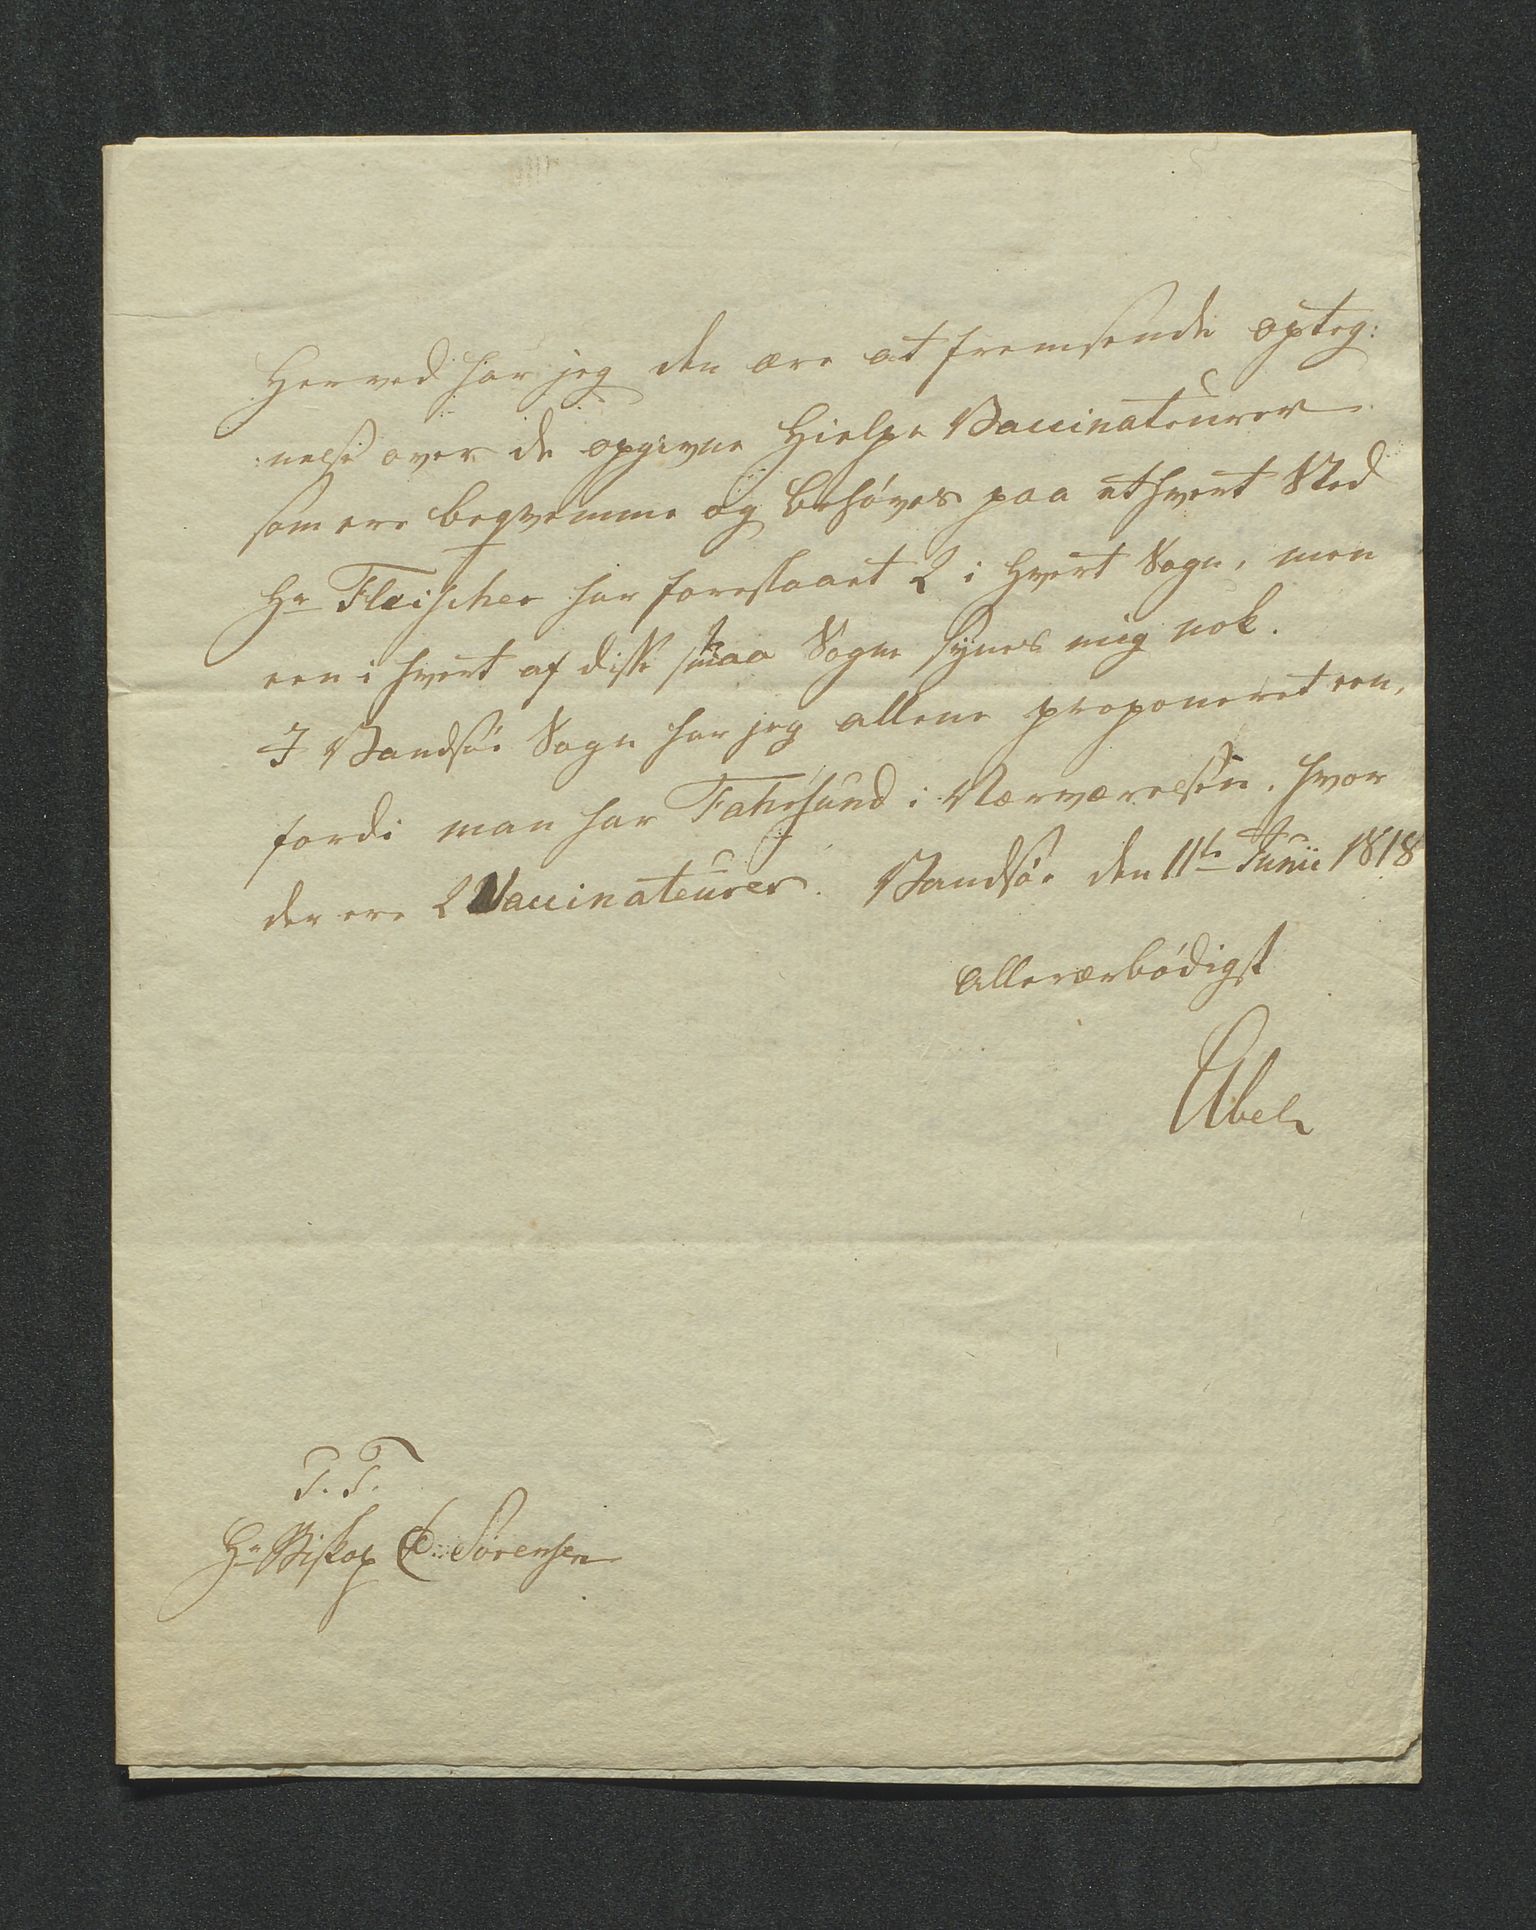 Herved har jeg den ære at fremsende opteg:
:nelse over de opgivne Hielpe Vaccinateurer
som ere beqvemme og behøves paa ethvert Sted
Hr Fleischer har foreslaaet 2 i hvert Sogn, men
een i hvert af disse smaa Sogne synes mig nok.
I Vandsøe Sogn har jeg allene proponeret een,
fordi man har Fahrsund i Nærværelsen, hvor
der ere 2 Vaccinateurer. Vandsøe den 11te Junii 1818
Allerærbødigst
Abel
T. T.
Hr Biskop Sørensen